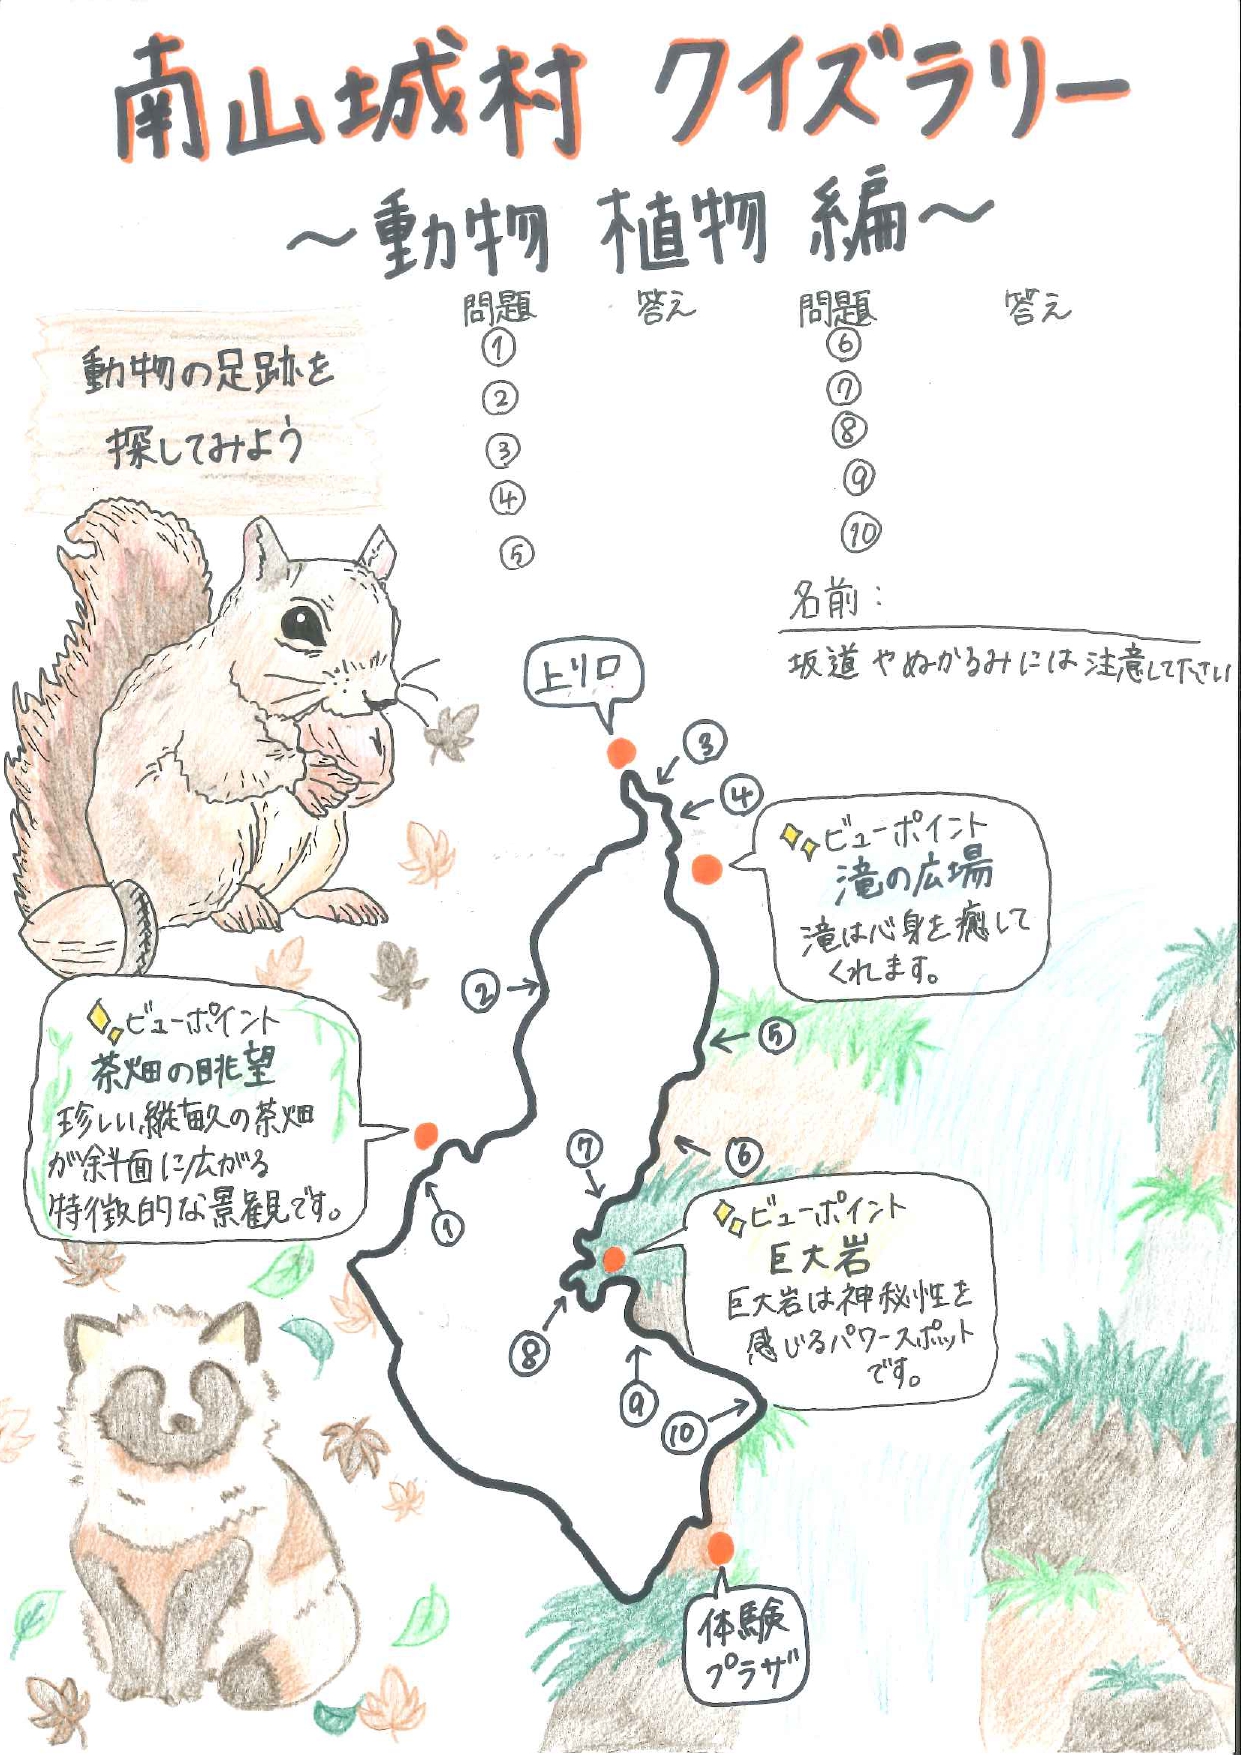 南山城村 クイズラリー
～動物 植物 編～
問題 答え 問題 答え
① ⑥
② ⑦
③ ⑧
④ ⑨
⑤ ⑩
動物の足跡を
探してみよう
名前：
坂道やぬかるみには注意して下さい
上り口
③
④
ビューポイント
滝の広場
滝は心身を癒して
くれます。
②
⑤
ビューポイント
茶畑の眺望
珍しい縦畝の茶畑
が斜面に広がる
特徴的な景観です。
①
⑦
⑥
ビューポイント
巨大岩
巨大岩は神秘性を
感じるパワースポット
です。
⑧
⑨
⑩
体験
プラザ